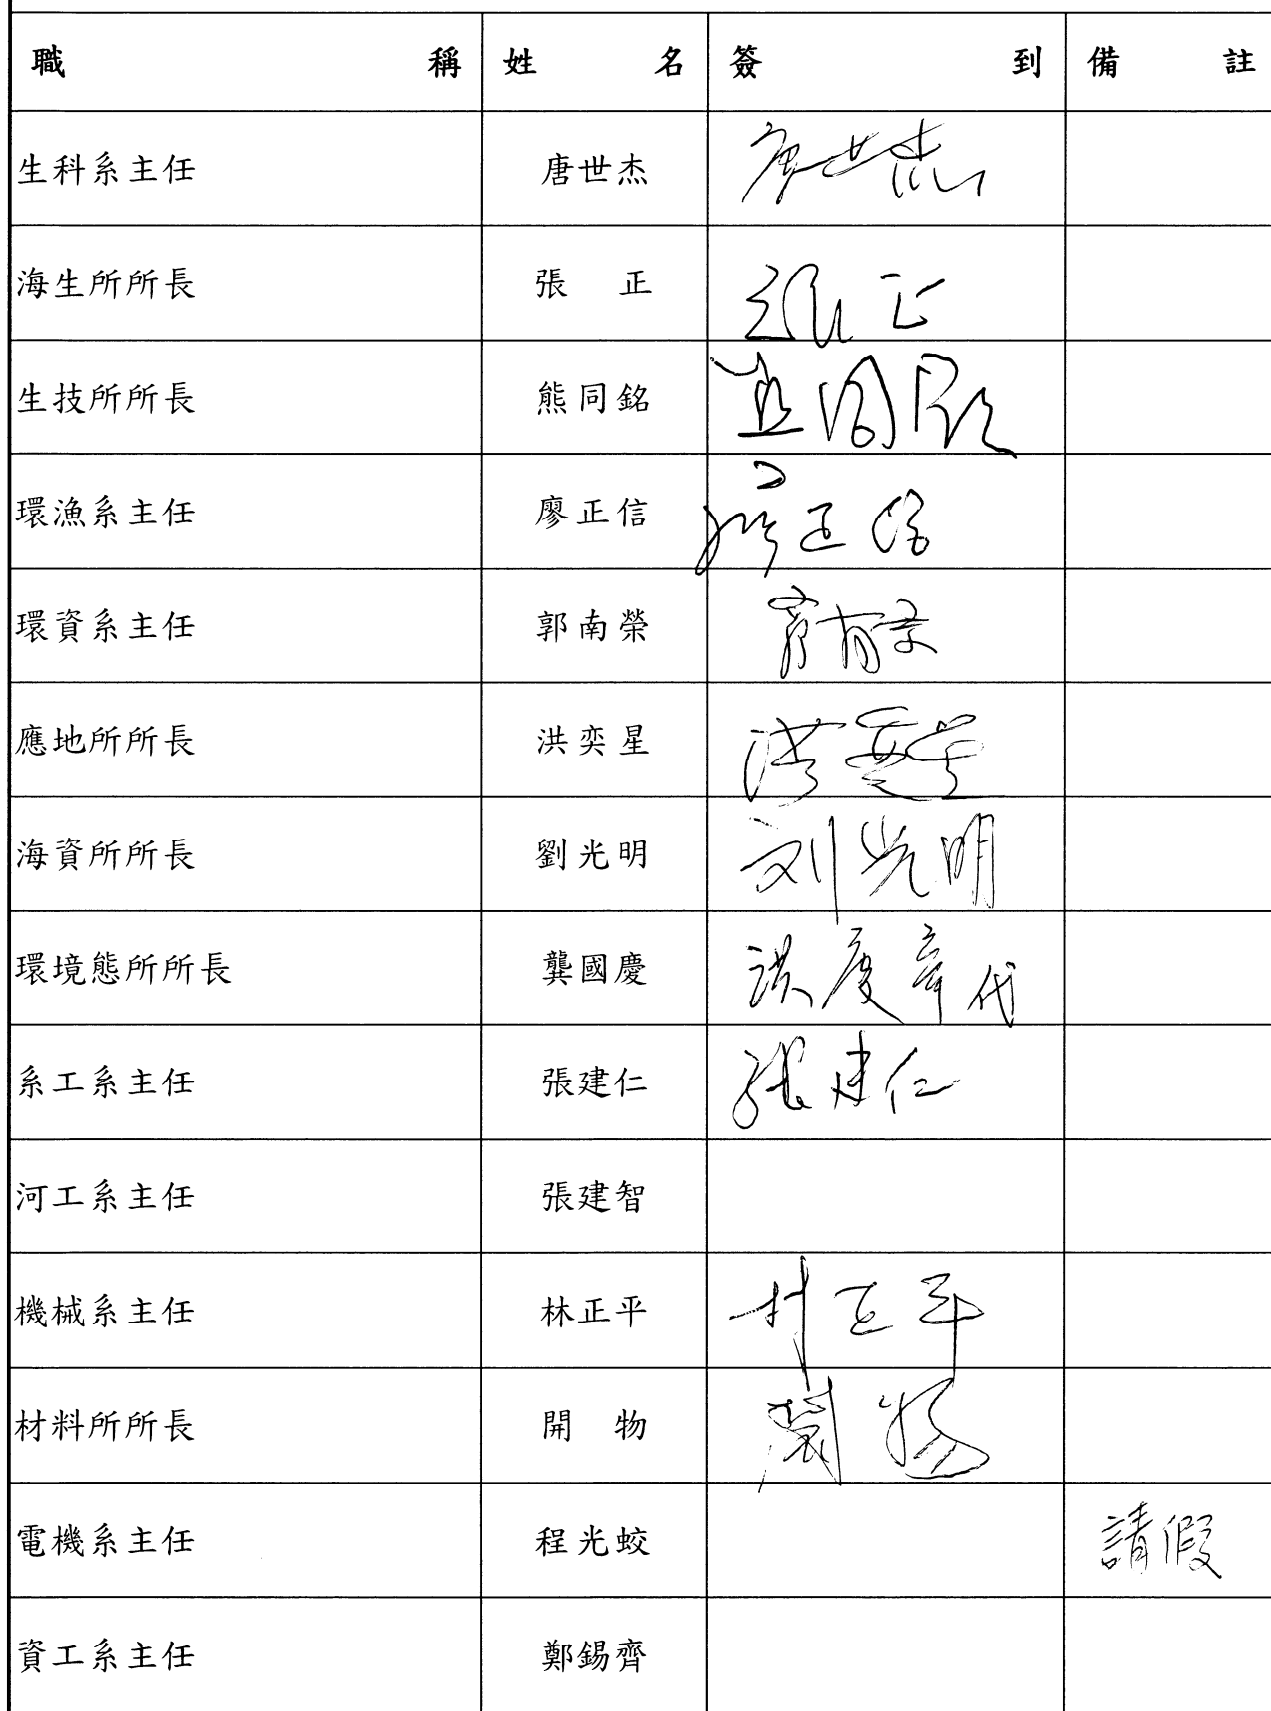 職稱 姓名 簽到 備註
生科系主任 唐世杰 唐世杰
海生所所長 張正 張正
生技所所長 熊同銘 熊同銘
環漁系主任 廖正信 廖正信
環資系主任 郭南榮
應地所所長 洪奕星 洪奕星
海資所所長 劉光明 刘光明
環境態所所長 龔國慶 代
系工系主任 張建仁 張建仁
河工系主任 張建智
機械系主任 林正平 林正平
材料所所長 開物 開物
電機系主任 程光蛟 請假
資工系主任 鄭錫齊